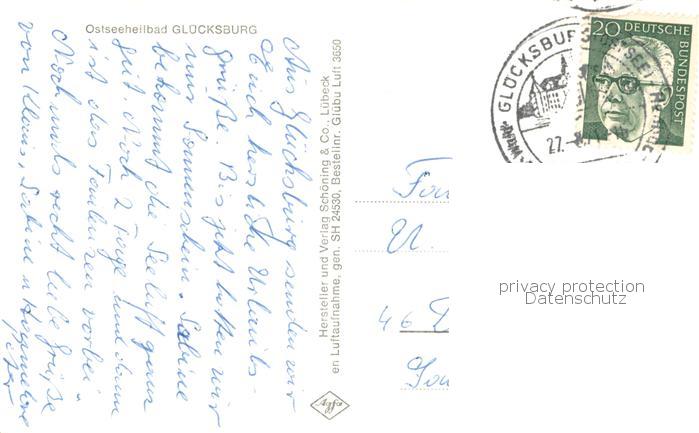 Ostseeheilbad GLÜCKSBURG
Aus Glücksburg senden wir
Euch herzliche Urlaubs-
grüße. Bis jetzt hatten wir
nur Sonnenschein. Sabine
bekommt die Seeluft ganz
gut. Noch 2 Tage und dann
ist das Faulenzen vorbei.
Nochmals recht liebe Grüße
von Klaus, Sabine u.
Hersteller und Verlag Schöning & Co., Lübeck
en Luftaufnahme, gen. SH 24530, Bestellnr. Glübu Luft 3650
Agfa
GLÜCKSBURG
27.
20 DEUTSCHE
BUNDESPOST
46
privacy protection
Datenschutz